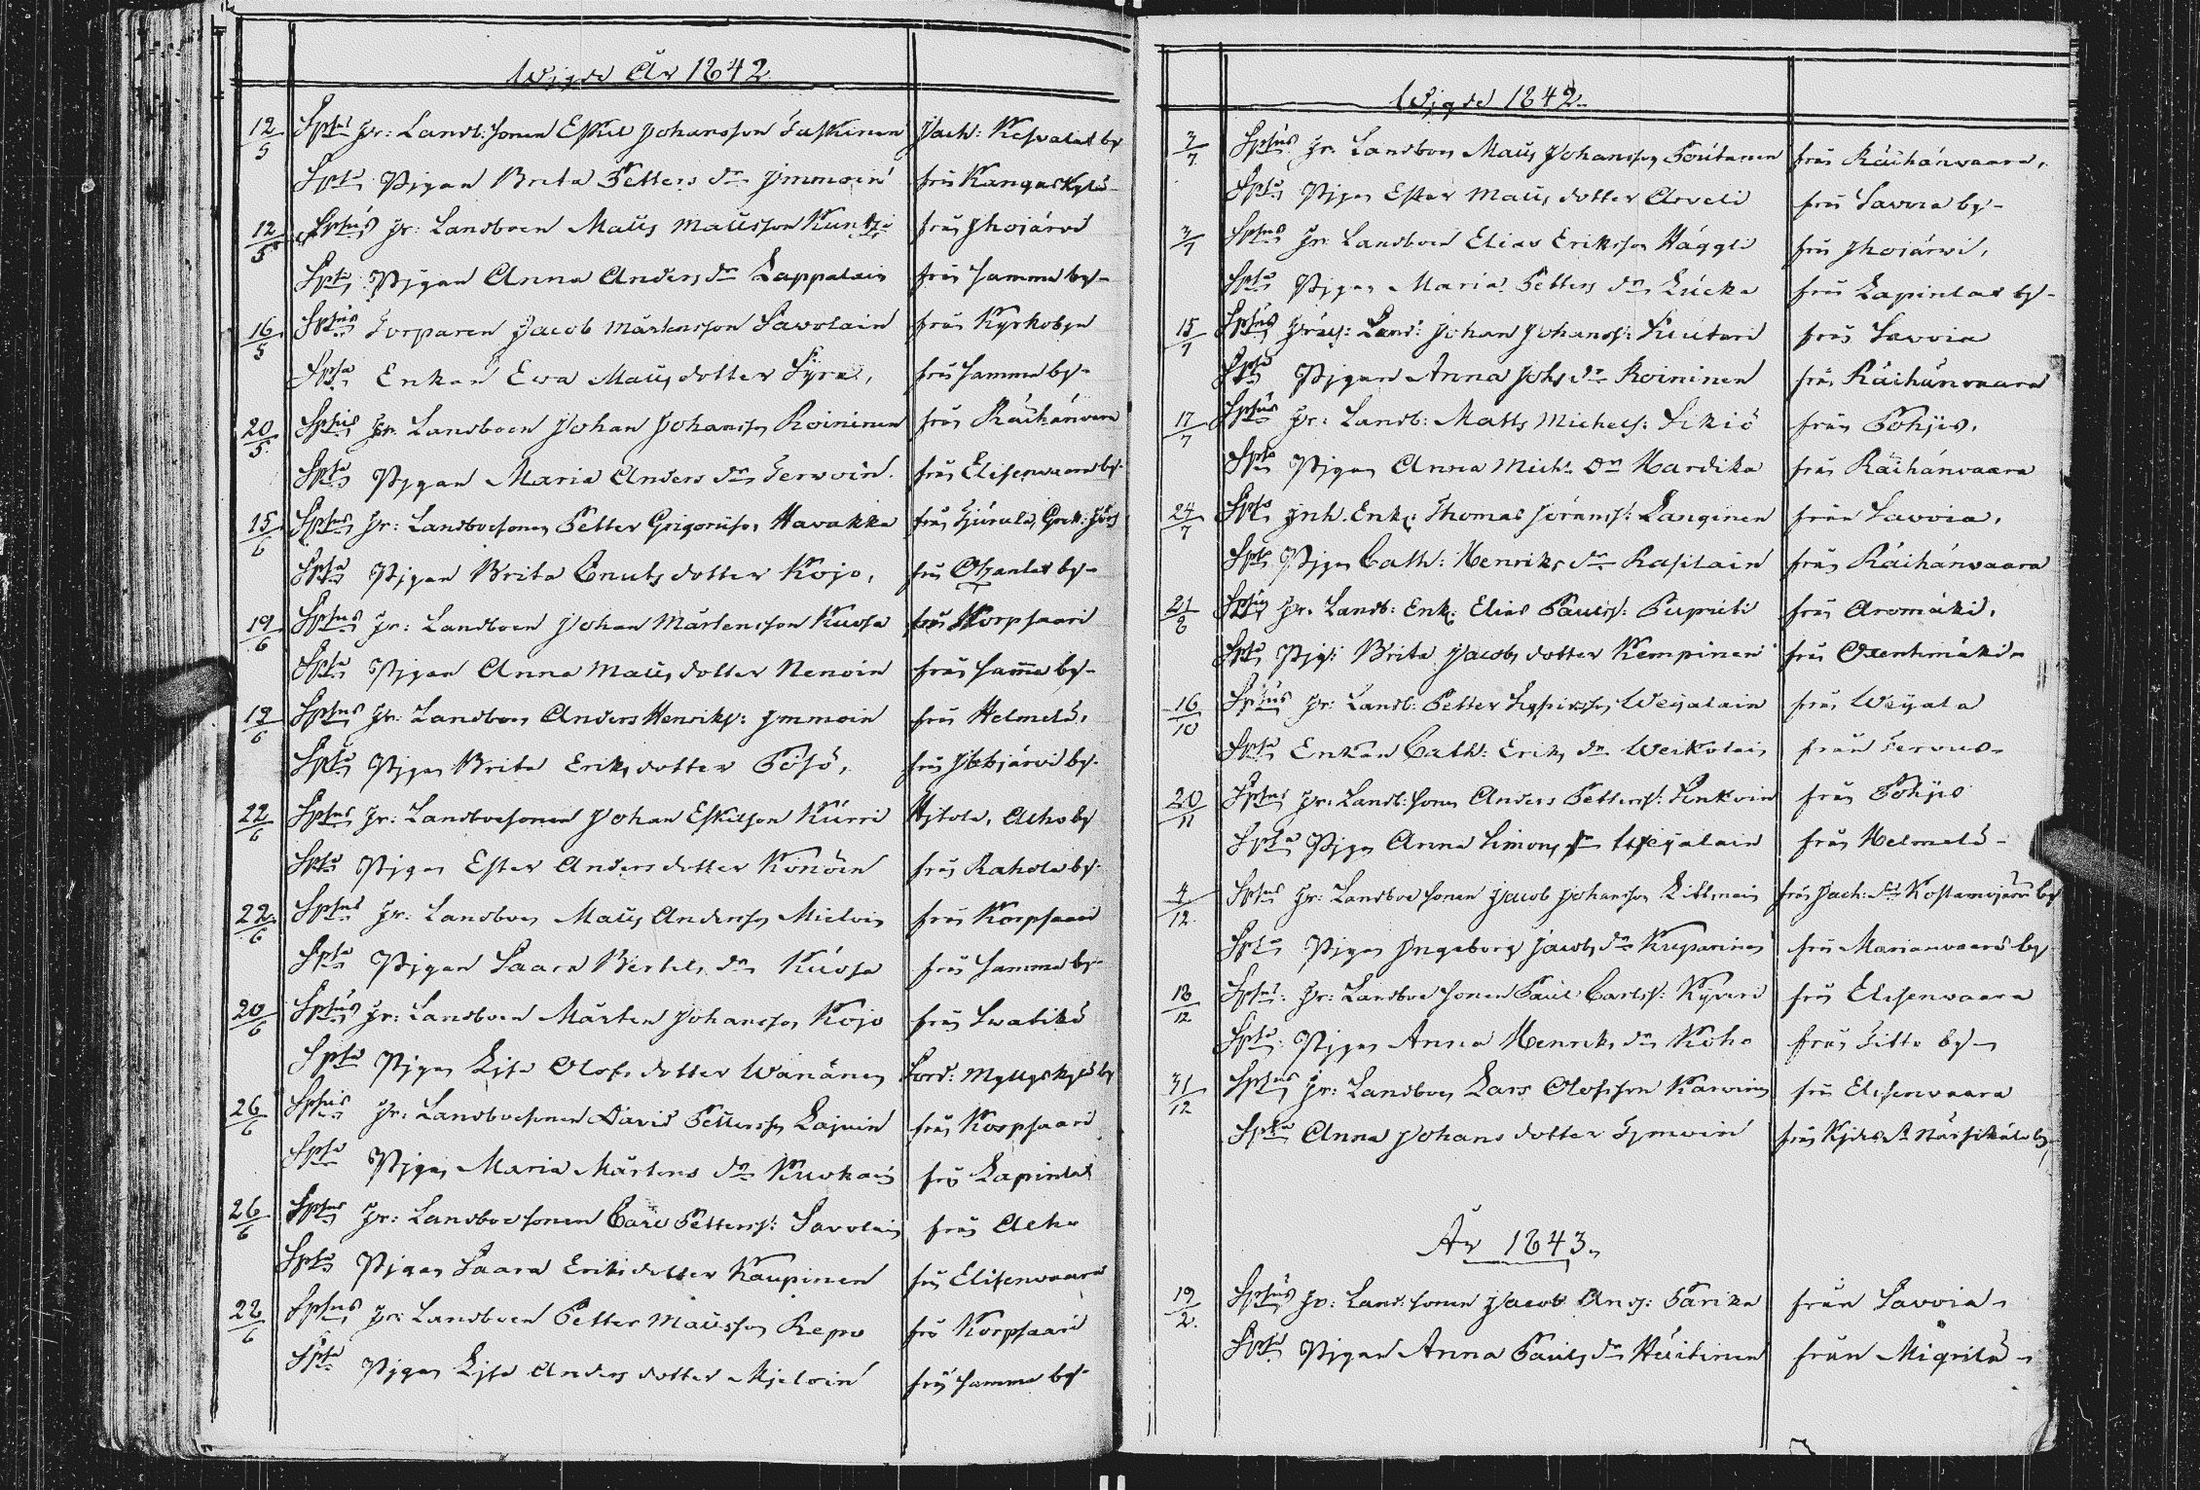 Wigde År 1842
12/5 Spsus Jr: Landb: sonen Eskil Johansson Taskinen Jach: Kesvalax by
Spsa Pigan Brita Petters dr Immoin från Kangaskylä
12/5 Spsus Jr: Landboen Matts Mattsson Kuntzi från Ihojärvi
Spsa Pigan Anna Anders dr Lappalain från samma by
16/5 Spsus Torparen Jacob Mårtensson Savolain från Kyrkobyn
Spsa Enkan Ewa Matts dotter Tyra, från samma by
20/5 Spsus Jr. Landboen Johan Johansson Roininen från Räihänvara
Spsa Pigan Maria Anders dr Terwoin från Elisenvaara by
15/6 Spsus Jr: Landboesonen Petter Grigoriisson Havakka från Tjurula, Grek: förs
Spsa Pigan Brita Cnuts dotter Kojo, från Otzanlax by
19/6 Spsus Jr: Landboen Johan Mårtensson Kuosa från Korpsaari
Spsa Pigan Anna Matts dotter Nenoin från samma by
19/6 Spsus Jr: Landboen Anders Henriks: Immoin från Helmelä,
Spsa Pigan Brita Eriks dotter Pösö, från Ihojärvi by
22/6 Spsus Jr: Landboesonen Johan Eskilsson Kurri Hjtola, Acho by
Spsa Pigan Ester Anders dotter Konoin från Rahola by
22/6 Spsus Jr: Landboen Matts Andersson Mieloin från Korpsaari
Spsa Pigan Saara Bertils dr Kuosa från samma by
20/6 Spsus Jr: Landboen Mårten Johansson Kojo från Swatikä
Spsa Pigan Lisa Olofs dotter Wänänen Sord: Myllykylä by
26/6 Spsus Jr: Landboesonen David Pettersson Lajuin från Korpsaari
Spsa Pigan Maria Mårtens dr Kuokain från Lapinlax
26/6 Spsus Jr: Landboesonen Carl Petterss: Savolain från Acho
Spsa Pigan Saara Eriksdotter Kaupinen från Elisenvaara
22/6 Spsus Jr: Landboen Petter Mattsson Repo från Korpsaari
Spsa Pigan Lisa Anders dotter Mieloin från samma by
Wigde 1842
3/7 Spsus Jr. Landboen Matts Johansson Poutanen från Räihänvaara,
Spsa Pigan Ester Matts dotter Orveli från Savoia by
3/7 Spsus Jr: Landboen Elias Eriksson Häggli från Ihojärvi,
Spsa Pigan Maria Petters dr Lucka från Lapinlax by
15/7 Spsus Jr: Land: Johan Johanss: Kuutari från Savoia
Spsa Pigan Anna Johs dr Roininen från Räihänvaara
17/7 Spsus Jr: Landb: Matts Michels: Sikiö från Pohjio,
Spsa Pigan Anna Mich: dr Hardika från Räihänvaara
24/7 Spsus Inh. Enk: Thomas Göranss: Lauginen från Savoia,
Spsa Pigan Cath: Henriks dr Rasilain från Räihänvaara
21/8 Spsus Jr. Landb: Enk: Elias Paulss: Puputti från Aromäki,
Spsa Pig: Brita Jacobs dotter Kempinen från Oxentmäki
16/10 Spsus Jr: Landb: Petter Weijalain från Weijala
Spsa Enkan Cath: Eriks dr Weikolain från Tervus
20/11 Spsus Jr: Landb: sonen Anders Petterss: Sinkoin från Pohjio
Spsa Pigan Anna Simons dr Weijalain från Helmelä
4/12 Spsus Jr: Landboesonen Jacob Johansson Littmain från Jach: Sn Kostamojärvi by
Spsa Pigan Ingeborg Jacobs dr Kuparinen från Marianvaara by
18/12 Spsus: Jr: Landboesonen Paul Carlss: Kyveri från Elisenvaara
Spsa: Pigan Anna Henriks dr Koho från Titto by
31/12 Spsus Jr: Landboen Lars Olofsson Karvinen från Elisenvaara
Spsa Anna Johans dotter Tymoin från Kides Sn Närsikälä by
År 1843.
19/2 Spsus Jr: Land: sonen Jacob And: Parika från Savoia
Spsa Pigan Anna Pauls dr Huitinen från Miqrilä